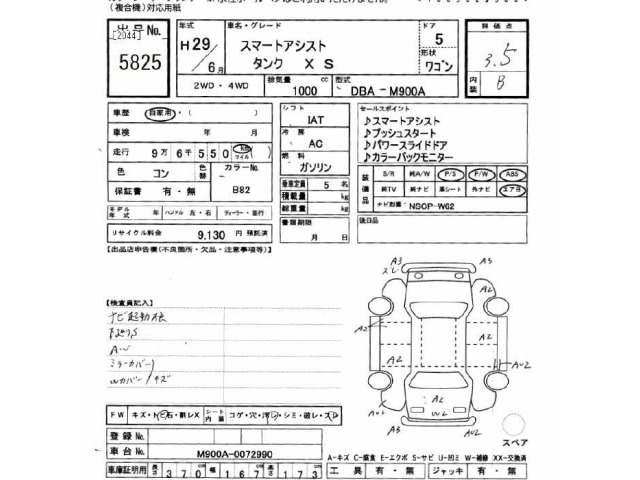 (複合機)対応用紙
出品 No. 年式 車名・グレード ドア 評価点
[2044] H29 スマートアシスト 5 3.5
5825 6月 タンク X S 形状 ワゴン 内装 B
2WD・4WD 排気量 1000 cc 型式 DBA-M900A
車歴 自家用・( ) シフト IAT セールスポイント
車検 年 月 冷房 AC ♪スマートアシスト
♪プッシュスタート
走行 9万6千550 km マイル 燃料 ガソリン ♪パワースライドドア
♪カラーバックモニター
色 コン 色替 カラーNo. B82 乗車定員 5 名
保証書 有・無 積載量 kg
総重量 kg
装備品 S/R 純A/W P/S P/W ABS
純TV 純ナビ 革シート 外ナビ エアB
ナビ型番: NSCP-W62
モデル年式 年 ハンドル 左・右 ディーラー・並行 書類期限 月 日 後日品
リサイクル料金 9,130 円 預託済
【出品店申告欄(不良箇所・欠品・注意事項等)】
【検査員記入】
ナビ起動
ミラーカバー
Wカバー キズ
A3 A3
ズレ
A2 A2
A2 A2
A2
A2
W2
A3 AU2
FW キズ・ヒビ石・割レX シート内装 コゲ・穴・汚レ・シミ・破レ・スレ
登録 No.
車台 No. M900A-0072990
スペア
A-キズ C-腐食 E-エクボ S-サビ U-凹ミ W-補修 XX-交換済
車庫証明用 長さ 370 cm 幅 167 cm 高さ 173 cm 工具 有・無 ジャッキ 有・無